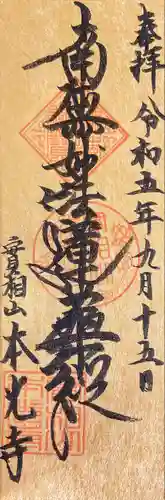 奉拝 令和五年九月十五日
南無妙法蓮華経
實相山 本光寺